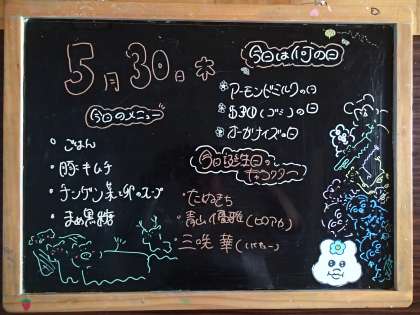 5月30日 木
今日は何の日
*アーモンドミルクの日
*530(ゴミ)の日
*オーガナイズの日
今日のメニュー
・ごはん
・豚キムチ
・チンゲン菜と卵のスープ
・まめ黒糖
今日誕生日のキャラクター
・たけきち
・青山優雅(ヒロアカ)
・三咲 華